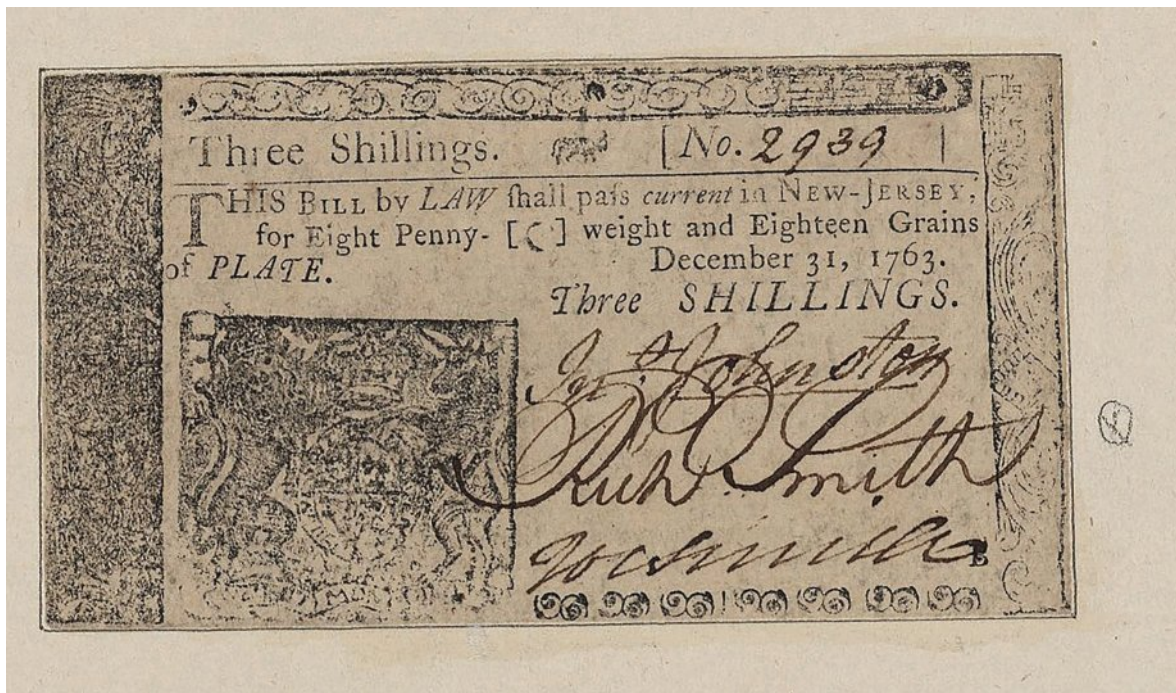 Three Shillings. [No. 2939 ]
THIS BILL by LAW ſhall paſs current in NEW-JERSEY,
for Eight Penny- [ ] weight and Eighteen Grains
of PLATE. December 31, 1763.
Three SHILLINGS.
Johnston
Richd. Smith
B